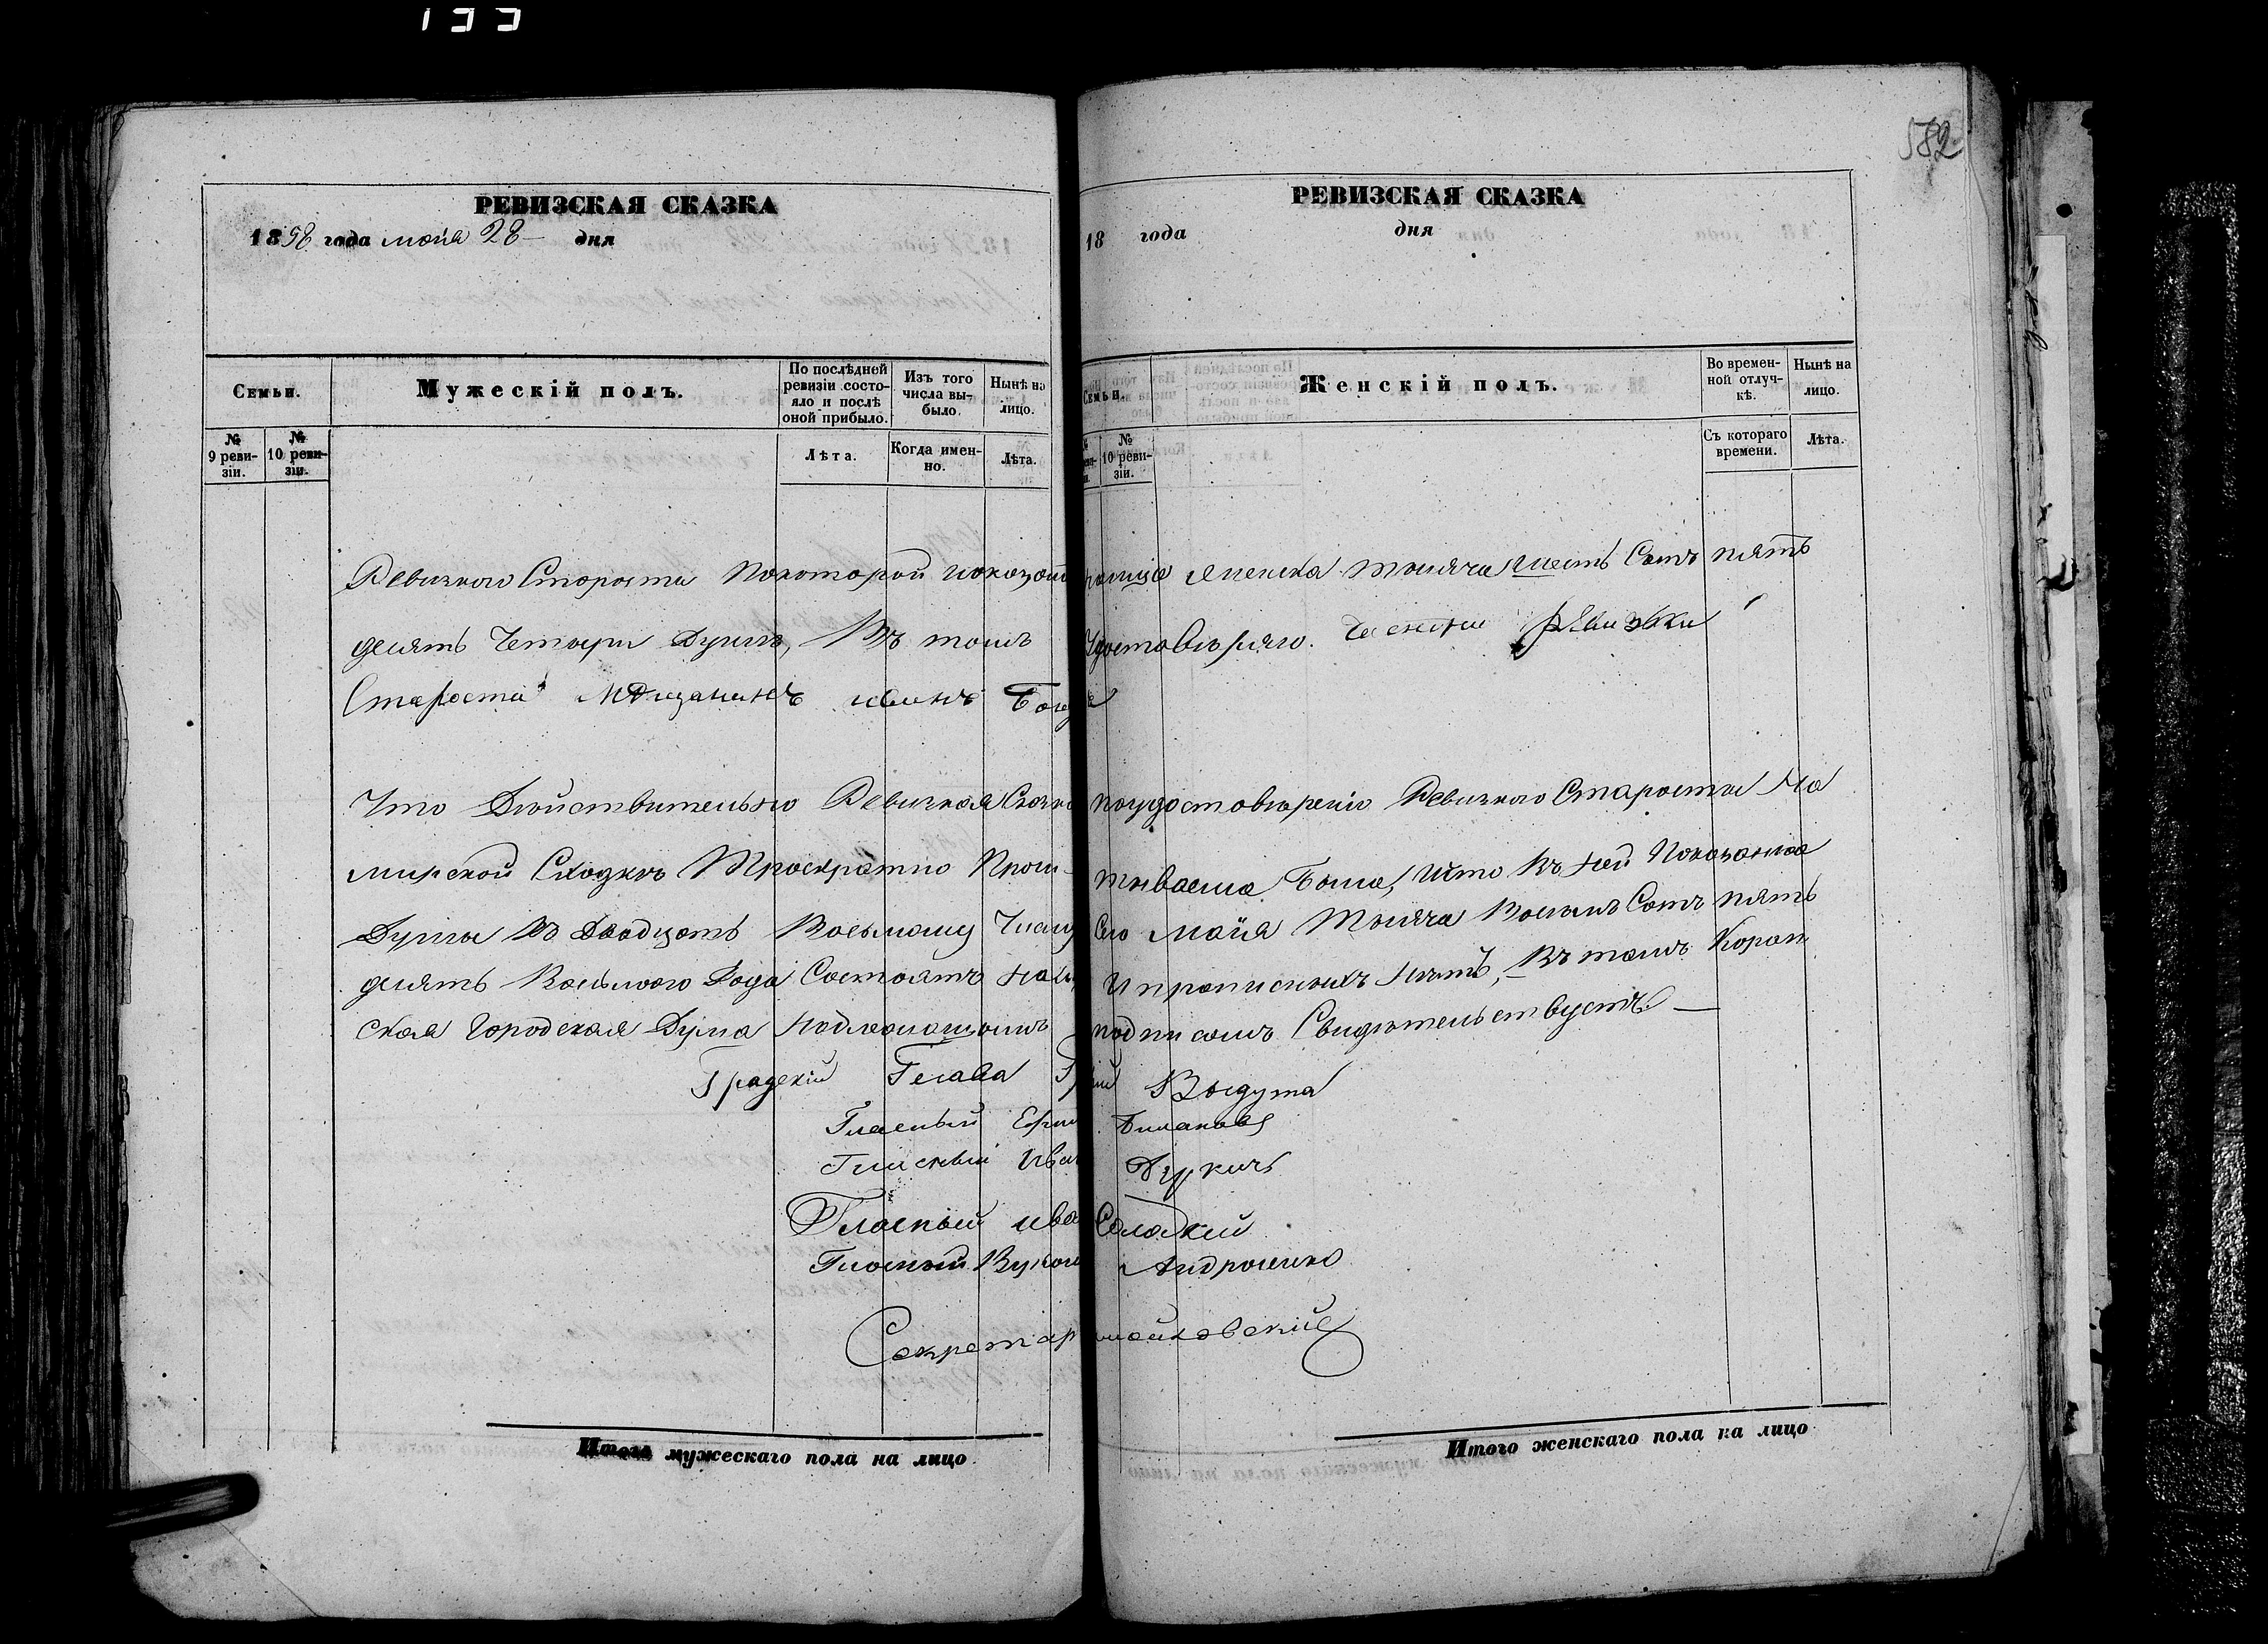 133
582
РЕВИЗСКАЯ СКАЗКА
1858 года мая 28 дня
РЕВИЗСКАЯ СКАЗКА
18 года дня
Семьи.
Мужескій полъ.
По послѣдней ревизіи состояло и послѣ оной прибыло.
Изъ того числа выбыло.
Нынѣ на лицо.
№ 9 ревизіи.
№ 10 ревизіи.
Лѣта.
Когда именно.
Лѣта.
Семьи.
Женскій полъ.
Во временной отлучкѣ.
Нынѣ на лицо.
№ 10 ревизіи.
Съ котораго времени.
Лѣта.
Ревизкого Старосты по которой показан мужеска тысяча шесть Сотъ пять
десять Четыри Души, Въ томъ Удостовѣряю.
Староста Мѣщанинъ
Что Дѣйствительно Ревизкая Сказка по удостовѣренію Ревизкого Старосты На
мирской Сходкѣ Троекратно Прочитываема Была, Что Въ ней Показанные
Души Въ Двадцать Восьмому Числу Сего Майя Тысяча Восемь Сотъ пять
десять Восьмого Года Состоятъ на и прописныхъ нѣтъ, Въ томъ Короп
ская Городская Дума надлежащимъ подписомъ Свидѣтельствуетъ
Градскій Голава Выдута
Гласный
Гласный Иван
Гласный Иван
Гласный
Секретарь
Итого мужескаго пола на лицо
Итого женскаго пола на лицо